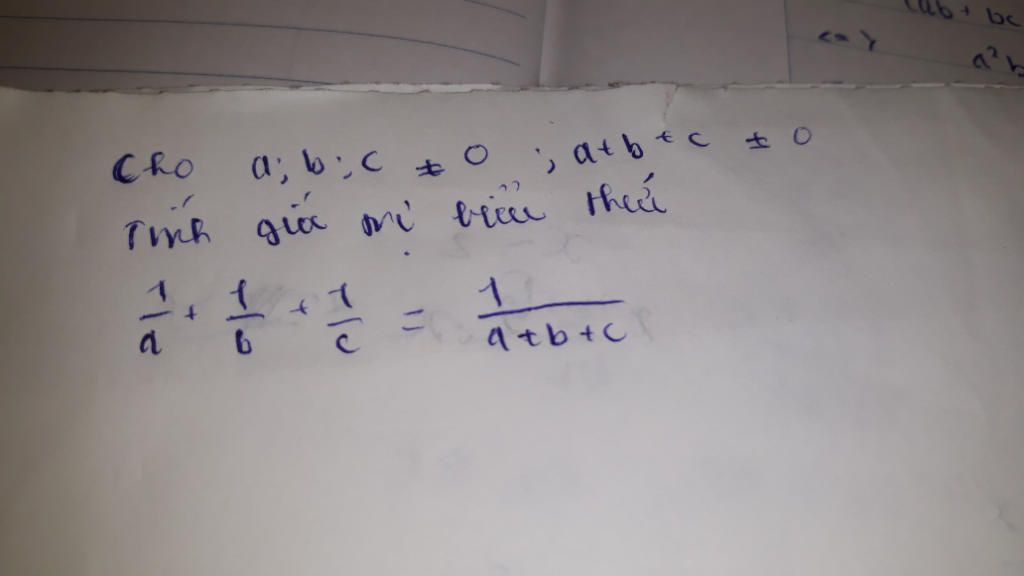 (ab + bc
<=>
a²b
Cho a; b; c ≠ 0 ; a+b+c ≠ 0
Tính giá trị biểu thức
1/a + 1/b + 1/c = 1/(a+b+c)